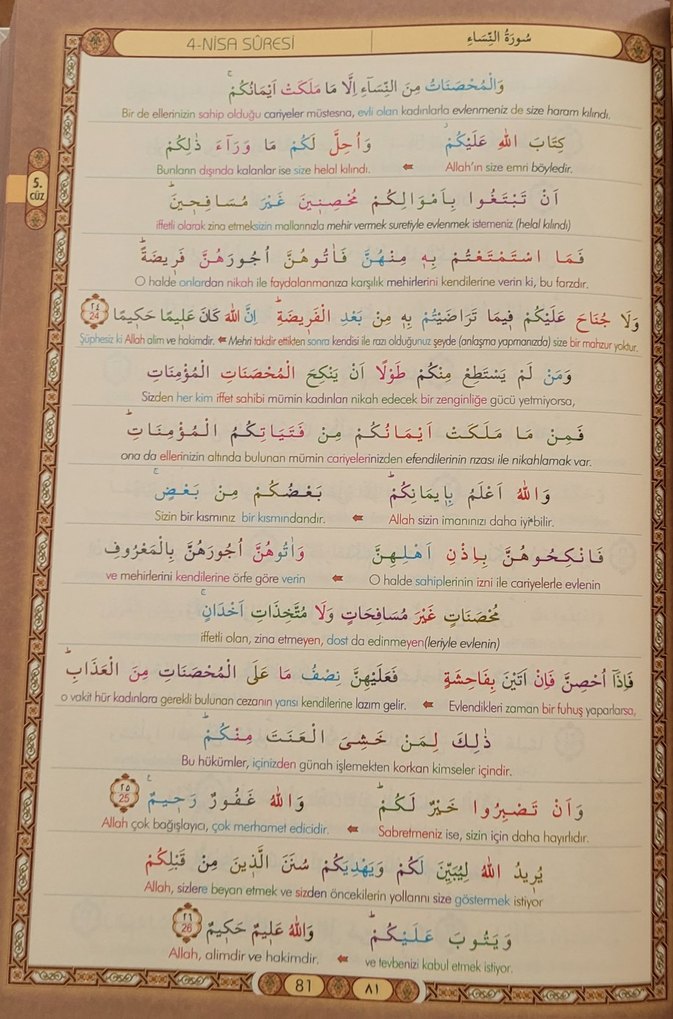 4-NİSA SÛRESİ سُورَةُ النِّسَاءِ
5. CÜZ
وَالْمُحْصَنَاتُ مِنَ النِّسَٓاءِ اِلَّا مَا مَلَكَتْ اَيْمَانُكُمْۚ
Bir de ellerinizin sahip olduğu cariyeler müstesna, evli olan kadınlarla evlenmeniz de size haram kılındı.
كِتَابَ اللّٰهِ عَلَيْكُمْۚ وَاُحِلَّ لَكُمْ مَا وَرَٓاءَ ذٰلِكُمْ
Bunların dışında kalanlar ise size helal kılındı. Allah'ın size emri böyledir.
اَنْ تَبْتَغُوا بِاَمْوَالِكُمْ مُحْصِنٖينَ غَيْرَ مُسَافِحٖينَؕ
iffetli olarak zina etmeksizin mallarınızla mehir vermek suretiyle evlenmek istemeniz (helal kılındı)
فَمَا اسْتَمْتَعْتُمْ بِهٖ مِنْهُنَّ فَاٰتُوهُنَّ اُجُورَهُنَّ فَرٖيضَةًؕ
O halde onlardan nikah ile faydalanmanıza karşılık mehirlerini kendilerine verin ki, bu farzdır.
وَلَا جُنَاحَ عَلَيْكُمْ فٖيمَا تَرَاضَيْتُمْ بِهٖ مِنْ بَعْدِ الْفَرٖيضَةِؕ اِنَّ اللّٰهَ كَانَ عَلٖيمًا حَكٖيمًا ٢٤ 24
Şüphesiz ki Allah alim ve hakimdir. Mehri takdir ettikten sonra kendisi ile razı olduğunuz şeyde (anlaşma yapmanızda) size bir mahzur yoktur.
وَمَنْ لَمْ يَسْتَطِعْ مِنْكُمْ طَوْلًا اَنْ يَنْكِحَ الْمُحْصَنَاتِ الْمُؤْمِنَاتِ
Sizden her kim iffet sahibi mümin kadınları nikah edecek bir zenginliğe gücü yetmiyorsa,
فَمِنْ مَا مَلَكَتْ اَيْمَانُكُمْ مِنْ فَتَيَاتِكُمُ الْمُؤْمِنَاتِؕ
ona da ellerinizin altında bulunan mümin cariyelerinizden efendilerinin rızası ile nikahlamak var.
وَاللّٰهُ اَعْلَمُ بِاٖيمَانِكُمْؕ بَعْضُكُمْ مِنْ بَعْضٍۚ
Sizin bir kısmınız bir kısmındandır. Allah sizin imanınızı daha iyi bilir.
فَانْكِحُوهُنَّ بِاِذْنِ اَهْلِهِنَّ وَاٰتُوهُنَّ اُجُورَهُنَّ بِالْمَعْرُوفِ
ve mehirlerini kendilerine örfe göre verin O halde sahiplerinin izni ile cariyelerle evlenin
مُحْصَنَاتٍ غَيْرَ مُسَافِحَاتٍ وَلَا مُتَّخِذَاتِ اَخْدَانٍۚ
iffetli olan, zina etmeyen, dost da edinmeyen(leriyle evlenin)
فَاِذَٓا اُحْصِنَّ فَاِنْ اَتَيْنَ بِفَاحِشَةٍ فَعَلَيْهِنَّ نِصْفُ مَا عَلَى الْمُحْصَنَاتِ مِنَ الْعَذَابِؕ
o vakit hür kadınlara gerekli bulunan cezanın yarısı kendilerine lazım gelir. Evlendikleri zaman bir fuhuş yaparlarsa,
ذٰلِكَ لِمَنْ خَشِيَ الْعَنَتَ مِنْكُمْؕ
Bu hükümler, içinizden günah işlemekten korkan kimseler içindir.
وَاَنْ تَصْبِرُوا خَيْرٌ لَكُمْؕ وَاللّٰهُ غَفُورٌ رَحٖيمٌۚ ٢٥ 25
Allah çok bağışlayıcı, çok merhamet edicidir. Sabretmeniz ise, sizin için daha hayırlıdır.
يُرٖيدُ اللّٰهُ لِيُبَيِّنَ لَكُمْ وَيَهْدِيَكُمْ سُنَنَ الَّذٖينَ مِنْ قَبْلِكُمْ
Allah, sizlere beyan etmek ve sizden öncekilerin yollarını size göstermek istiyor
وَيَتُوبَ عَلَيْكُمْؕ وَاللّٰهُ عَلٖيمٌ حَكٖيمٌ ٢٦ 26
Allah, alimdir ve hakimdir. ve tevbenizi kabul etmek istiyor.
81 ٨١